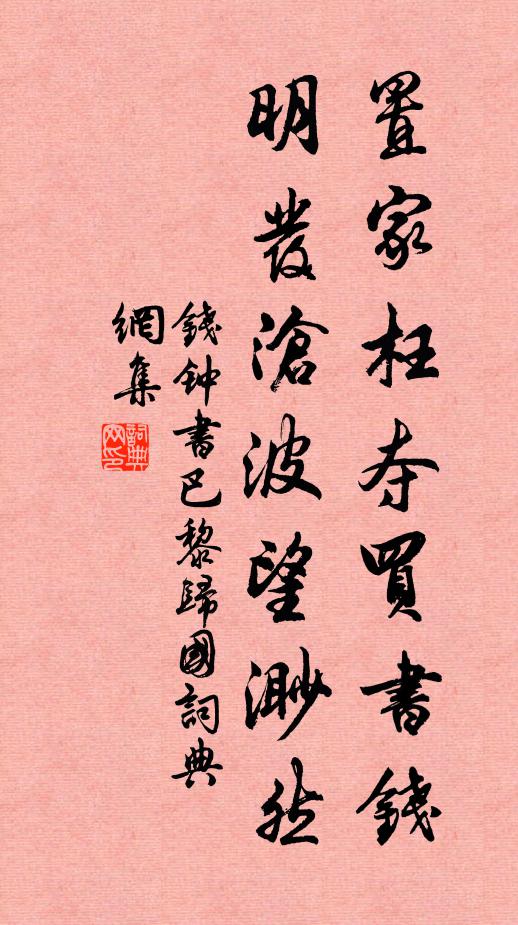 置家枉夺買書錢
明發滄波望渺然
錢钟書巴黎歸國詞典
網集
詞典網印